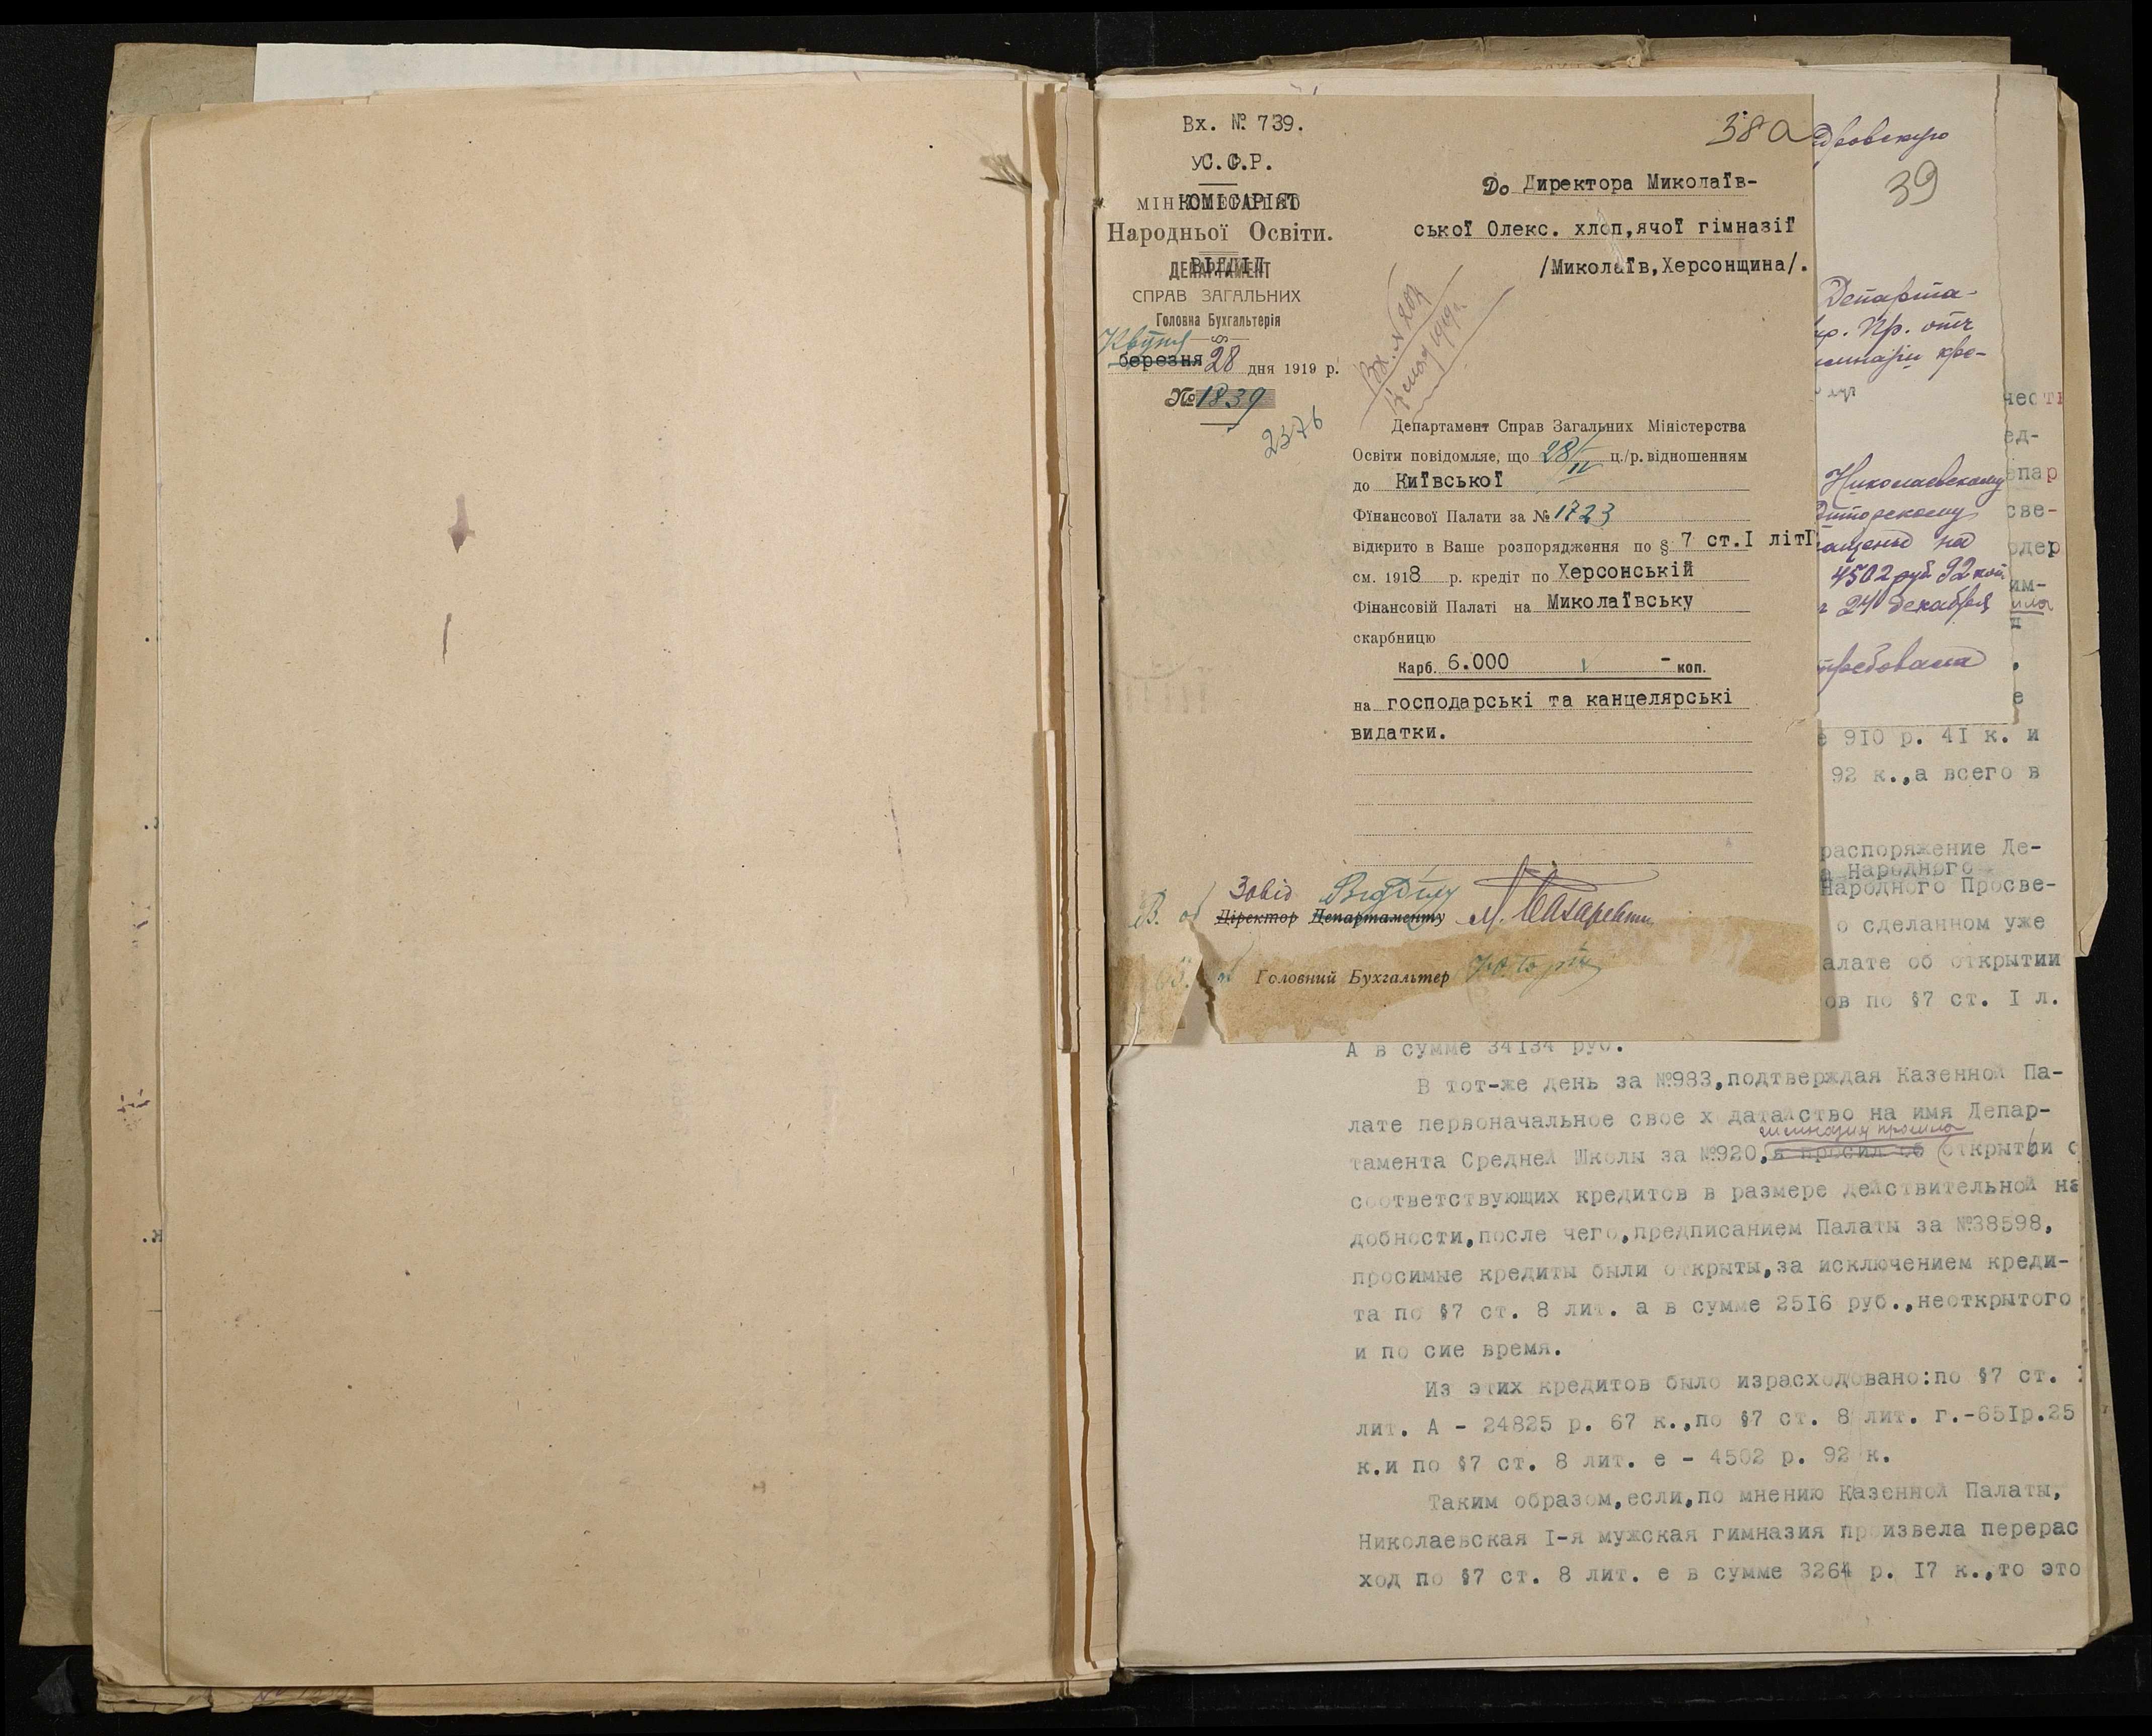 Вх. № 739.
УС.С.Р.
КОМІСАРІЯТ
Народньої Освіти.
ВІДДІЛ
СПРАВ ЗАГАЛЬНИХ
Головна Бухгальтерія
Квітня
березня 28 дня 1919 р.
№ 1839
2376
38а
До Директора Миколаїв-
ської Олекс. хлоп,ячої гімназії
/Миколаїв,Херсонщина/.
Вх. №204
1919 г.
Департамент Справ Загальних Міністерства
Освіти повідомляє, що 28/IV ц./р. відношенням
до Київської
Фінансової Палати за № 1723
відкрито в Ваше розпорядження по § 7 ст.I літ
см. 1918 р. кредіт по Херсонській
Фінансовій Палаті на Миколаївську
скарбницю
Карб. 6.000 - коп.
на господарські та канцелярські
видатки.
Завід Відділу
В. об Діректор Департаменту
Головний Бухгальтер
39
Департа-
Николаевскому
на
4502 руб 92 коп
24 декабря
честь
ед-
епар
све-
одер
им-
е 910 р. 41 к. и
92 к.,а всего в
распоряжение Де-
Народного
Народного Просве-
о сделанном уже
алате об открытии
ов по §7 ст. I л.
А в сумме 34134 руб.
В тот-же день за №983,подтверждая Казенной Па-
лате первоначальное свое х датайство на имя Депар-
гимназия просила
тамента Средней Школы за №920,я просил об открытии с
соответствующих кредитов в размере действительной на
добности,после чего,предписанием Палаты за №38598,
просимые кредиты были открыты,за исключением креди-
та по §7 ст. 8 лит. а в сумме 2516 руб.,неоткрытого
и по сие время.
Из этих кредитов было израсходовано:по §7 ст.
лит. А - 24825 р. 67 к.,по §7 ст. 8 лит. г.-651р.25
к.и по §7 ст. 8 лит. е - 4502 р. 92 к.
Таким образом,если,по мнению Казенной Палаты,
Николаевская I-я мужская гимназия произвела перерас
ход по §7 ст. 8 лит. е в сумме 3264 р. 17 к.,то это